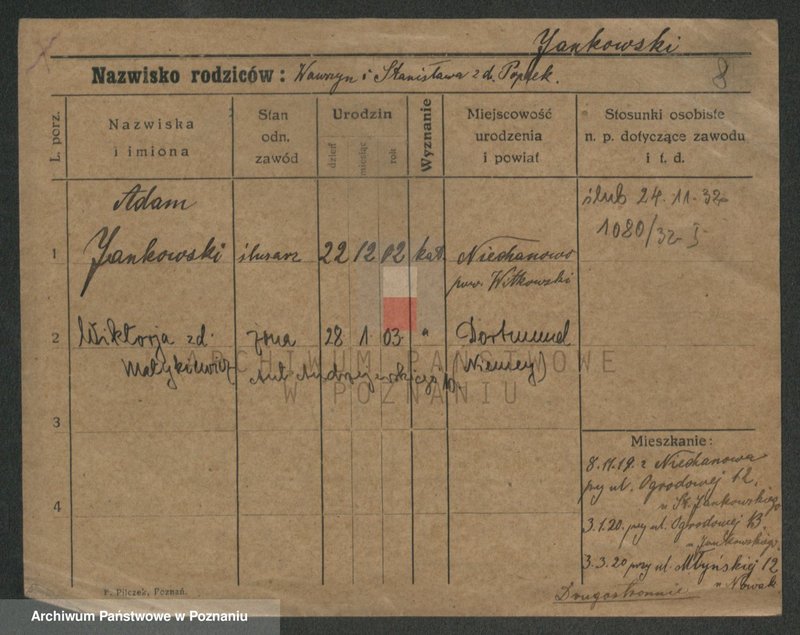 Jankowski
Nazwisko rodziców: Wawrzyn i Stanisława z d. Popek.
8
L. porz.
Nazwiska i imiona
Stan odn. zawód
Urodzin
dzień
miesiąc
rok
Wyznanie
Miejscowość urodzenia i powiat
Stosunki osobiste n. p. dotyczące zawodu i t. d.
Adam
ślub 24.11.32
1080/32 I
1 Jankowski ślusarz 22 12 02 kat. Niechanowo
pow. Witkowski
2 Wiktorja z d. żona 28 1 03 " Dortmund
Niemcy)
ARCHIWUM PAŃSTWOWE
W POZNANIU
3
Mieszkanie:
8.11.19. z Niechanowa
przy ul. Ogrodowej 12,
u St. Jankowskiego
4
3.1.20. przy ul. Ogrodowej 13,
u Jankowskiego
3.3.20 przy ul. Młyńskiej 12
u Nowak
Drugostronnie
F. Pilczek, Poznań.
Archiwum Państwowe w Poznaniu